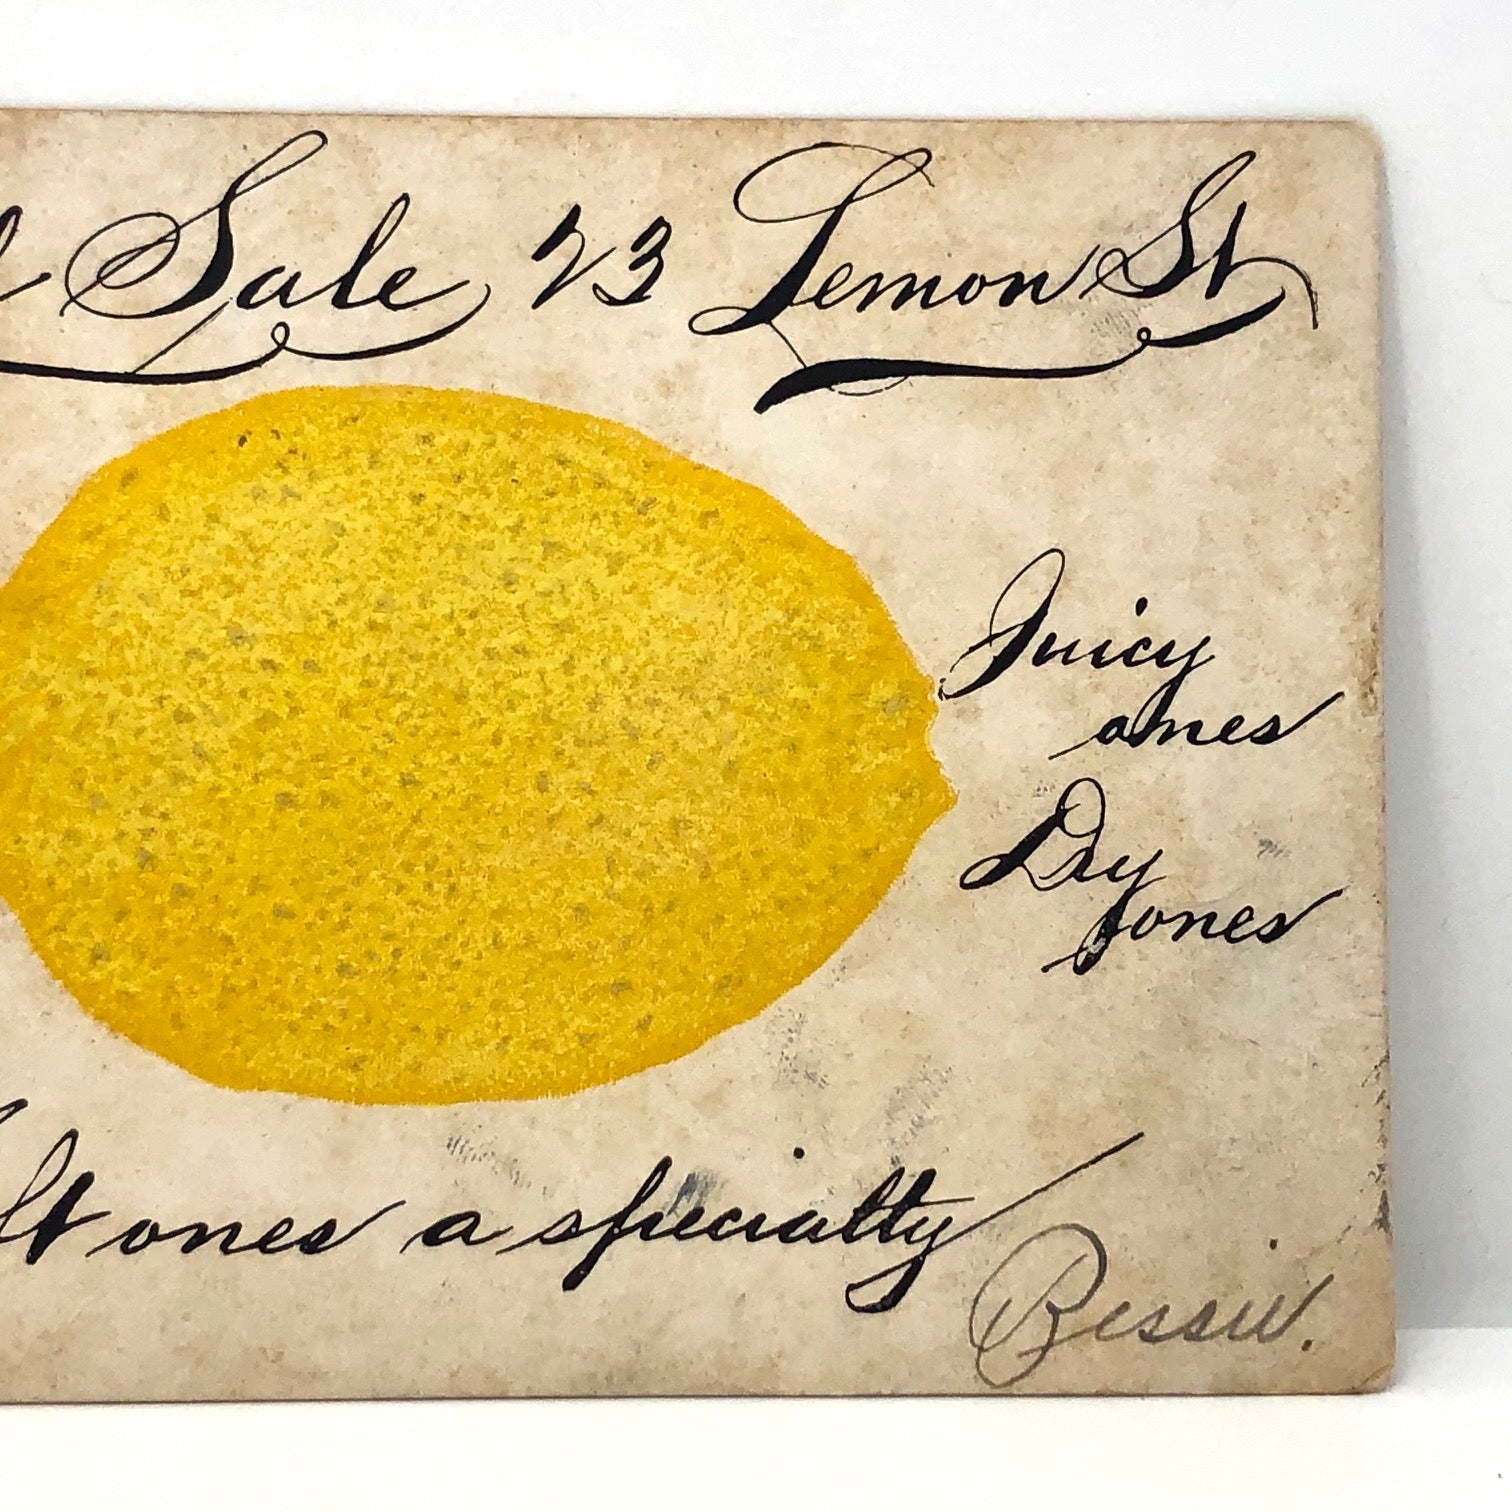 Sale 23 Lemon St
Juicy
ones
Dry
ones
ones a specialty
Bessie.